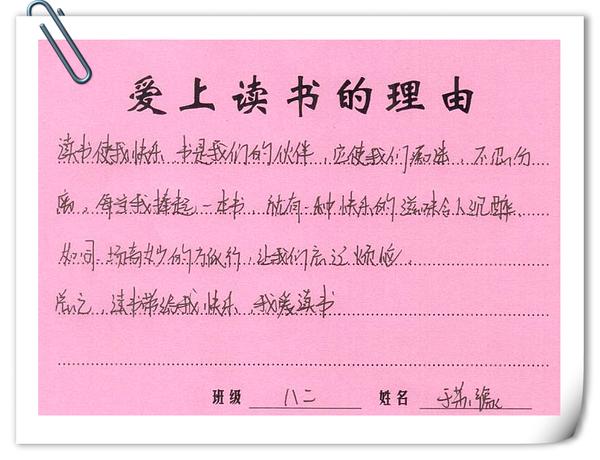 爱上读书的理由
读书使我快乐 书是我们的伙伴 它使我们 不
离 每当我捧起一本书 就有一种快乐的滋味令人沉醉
如同一场奇妙的 让我们忘记烦恼
总之 读书带给我快乐 我爱读书
班级 八二 姓名 于苏